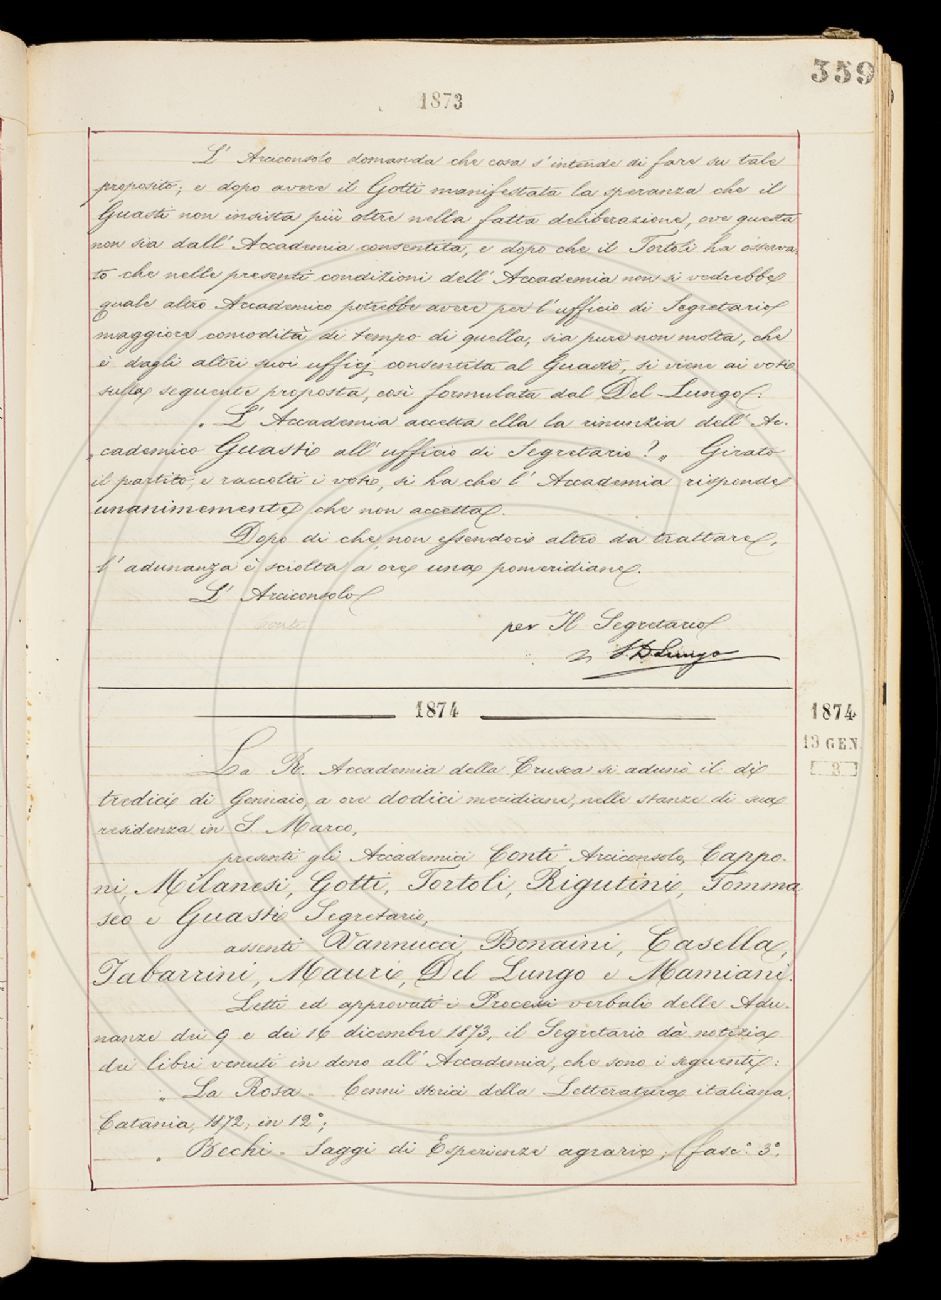 359
1873
L'Arciconsolo domanda che cosa s'intende di fare su tale
proposito; e dopo avere il Gotti manifestata la speranza che il
Guasti non insista più oltre nella fatta deliberazione, ove questa
non sia dall'Accademia consentita, e dopo che il Tortoli ha osserva-
to che nelle presenti condizioni dell'Accademia non si vedrebbe
quale altro Accademico potrebbe avere per l'ufficio di Segretario
maggiore comodità di tempo di quella, sia pure non molta, che
è dagli altri suoi ufficj consentita al Guasti, si viene ai voti
sulla seguente proposta, così formulata dal Del Lungo:
„ L'Accademia accetta ella la rinunzia dell'Ac-
„ cademico Guasti all'ufficio di Segretario? „ Girato
il partito, e raccolti i voti, si ha che l'Accademia risponde
unanimemente che non accetta.
Dopo di che, non essendoci altro da trattare,
l'adunanza è sciolta a ore una pomeridiane.
L'Arciconsolo
Conti
per Il Segretario
I. Del Lungo
1874
1874
13 GEN.
3
La R. Accademia della Crusca si adunò il dì
tredici di Gennaio, a ore dodici meridiane, nelle stanze di sua
residenza in S. Marco,
presenti gli Accademici Conti Arciconsolo, Cappo-
ni, Milanesi, Gotti, Tortoli, Rigutini, Tomma
seo e Guasti Segretario,
assenti Vannucci, Bonaini, Casella,
Tabarrini, Mauri, Del Lungo e Mamiani.
Letti ed approvati i Processi verbali delle Adu-
nanze dei 9 e dei 16 dicembre 1873, il Segretario dà notizia
dei libri venuti in dono all'Accademia, che sono i seguenti:
„ La Rosa - Cenni storici della Letteratura italiana.
Catania, 1872, in 12°;
„ Bechi - Saggi di Esperienze agrarie; (fasc.° 3°.